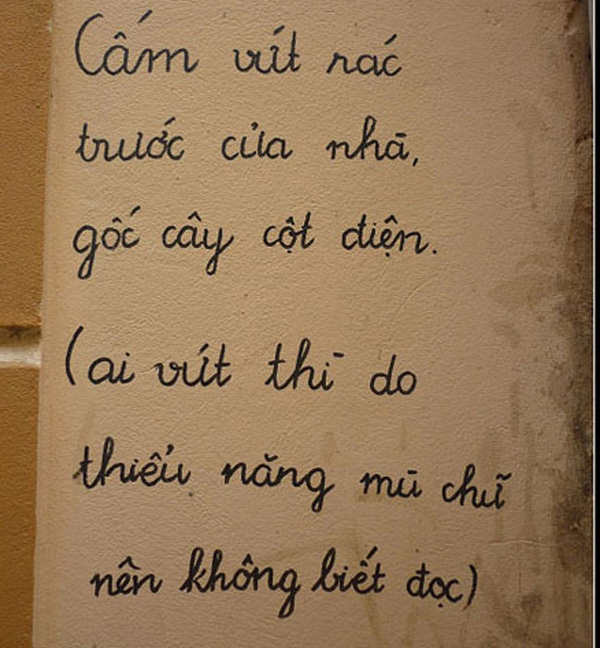 Cấm vứt rác
trước cửa nhà,
gốc cây cột điện.
(ai vứt thì do
thiểu năng mù chữ
nên không biết đọc)